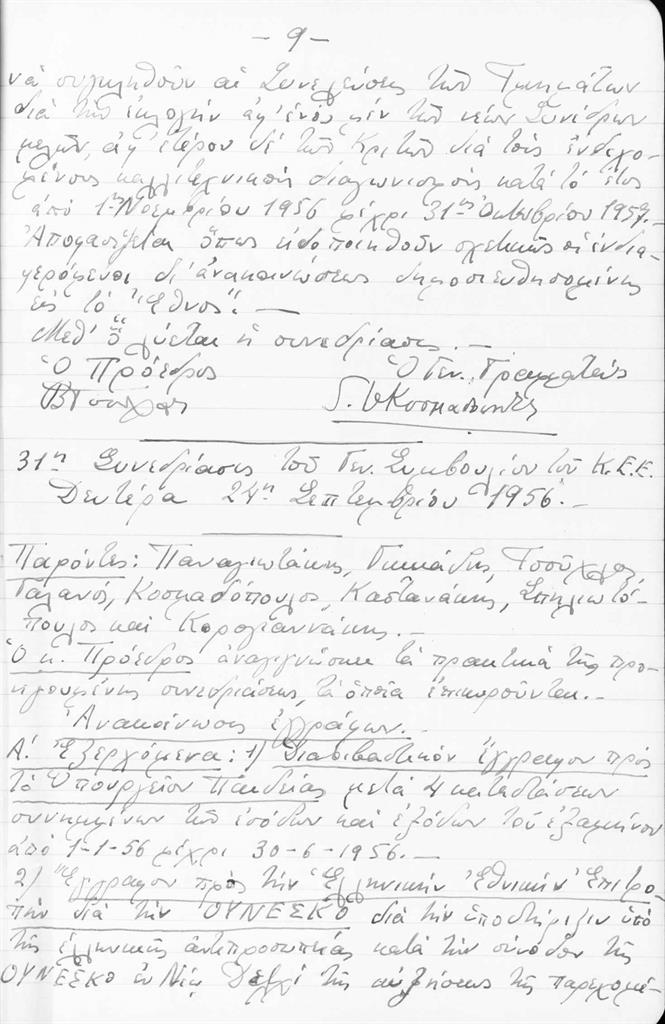 - 9 -
νὰ συγκληθοῦν αἱ Συνελεύσεις τῶν Τμημάτων
διὰ τὴν ἐκλογὴν ἀφ' ἑνὸς μὲν τῶν νέων Συνέδρων
μελῶν, ἀφ' ἑτέρου δὲ τῶν Κριτῶν διὰ τοὺς ἐνδεχο-
μένους καλλιτεχνικοὺς διαγωνισμοὺς κατὰ τὸ ἔτος
ἀπὸ 1ης Νοεμβρίου 1956 μέχρι 31ης Ὀκτωβρίου 1957.
Ἀποφασίζεται ὅπως εἰδοποιηθοῦν σχετικῶς οἱ ἐνδια-
φερόμενοι δι' ἀνακοινώσεως δημοσιευθησομένης
εἰς τὸ "Ἔθνος". -
Μεθ' ὃ λύεται ἡ συνεδρίασις. -
Ὁ Πρόεδρος Ὁ Γεν. Γραμματεὺς
31η Συνεδρίασις τοῦ Γεν. Συμβουλίου τοῦ Κ.Ε.Ε.
Δευτέρα 24η Σεπτεμβρίου 1956. -
Παρόντες: Παναγιωτάκης, Γιαννάδης, Τσοῦχλος,
Γαλανός, Κοσμαδόπουλος, Καστανάκης, Σπηλιωτό-
πουλος καὶ Καρογιαννάκης. -
Ὁ κ. Πρόεδρος ἀναγιγνώσκει τὰ πρακτικὰ τῆς προ-
ηγουμένης συνεδριάσεως, τὰ ὁποῖα ἐπικυροῦνται. -
Ἀνακοίνωσις ἐγγράφων. -
Α! Ἐξερχόμενα: 1) Διαβιβαστικὸν ἔγγραφον πρὸς
τὸ Ὑπουργεῖον Παιδείας μετὰ 4 καταστάσεων
συνημμένων τῶν ἐσόδων καὶ ἐξόδων τοῦ ἑξαμήνου
ἀπὸ 1-1-56 μέχρι 30-6-1956. -
2) Ἔγγραφον πρὸς τὴν Ἑλληνικὴν Ἐθνικὴν Ἐπιτρο-
πὴν διὰ τὴν ΟΥΝΕΣΚΟ διὰ τὴν ὑποστήριξιν ὑπὸ
τῆς ἑλληνικῆς ἀντιπροσωπείας κατὰ τὴν σύνοδον τῆς
ΟΥΝΕΣΚΟ ἐν Νέῳ Δελχὶ τῆς αὐξήσεως τῆς παρεχομέ-